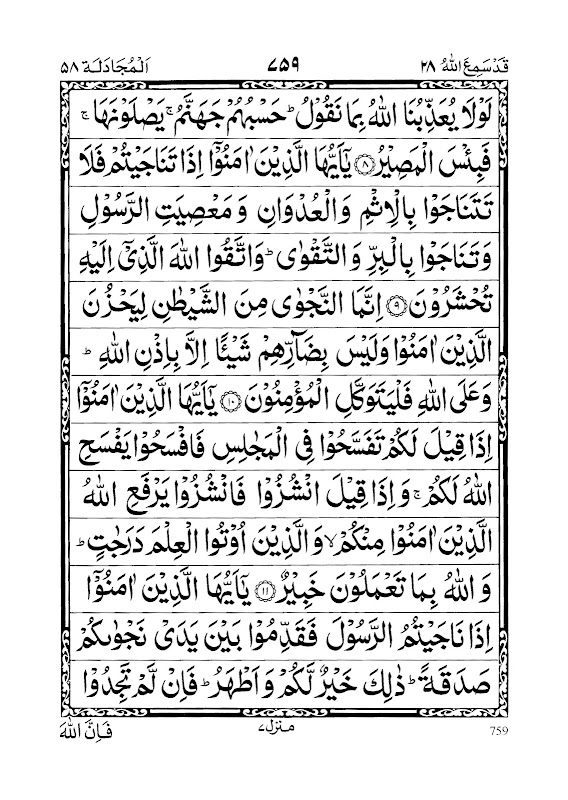 قَدْ سَمِعَ اللّٰهُ ٢٨ ٧٥٩ اَلْمُجَادَلَة ٥٨
لَوْلَا يُعَذِّبُنَا اللّٰهُ بِمَا نَقُوْلُ ؕ حَسْبُهُمْ جَهَنَّمُ ۚ يَصْلَوْنَهَا ۚ
فَبِئْسَ الْمَصِيْرُ ﴿٨﴾ يٰۤاَيُّهَا الَّذِيْنَ اٰمَنُوْۤا اِذَا تَنَاجَيْتُمْ فَلَا
تَتَنَاجَوْا بِالْاِثْمِ وَالْعُدْوَانِ وَمَعْصِيَتِ الرَّسُوْلِ
وَتَنَاجَوْا بِالْبِرِّ وَالتَّقْوٰى ؕ وَاتَّقُوا اللّٰهَ الَّذِيْۤ اِلَيْهِ
تُحْشَرُوْنَ ﴿٩﴾ اِنَّمَا النَّجْوٰى مِنَ الشَّيْطٰنِ لِيَحْزُنَ
الَّذِيْنَ اٰمَنُوْا وَلَيْسَ بِضَآرِّهِمْ شَيْـًٔا اِلَّا بِاِذْنِ اللّٰهِ ؕ
وَعَلَى اللّٰهِ فَلْيَتَوَكَّلِ الْمُؤْمِنُوْنَ ﴿١٠﴾ يٰۤاَيُّهَا الَّذِيْنَ اٰمَنُوْۤا
اِذَا قِيْلَ لَكُمْ تَفَسَّحُوْا فِى الْمَجٰلِسِ فَافْسَحُوْا يَفْسَحِ
اللّٰهُ لَكُمْ ۚ وَاِذَا قِيْلَ انْشُزُوْا فَانْشُزُوْا يَرْفَعِ اللّٰهُ
الَّذِيْنَ اٰمَنُوْا مِنْكُمْ ۙ وَالَّذِيْنَ اُوْتُوا الْعِلْمَ دَرَجٰتٍ ؕ
وَاللّٰهُ بِمَا تَعْمَلُوْنَ خَبِيْرٌ ﴿١١﴾ يٰۤاَيُّهَا الَّذِيْنَ اٰمَنُوْۤا
اِذَا نَاجَيْتُمُ الرَّسُوْلَ فَقَدِّمُوْا بَيْنَ يَدَىْ نَجْوٰىكُمْ
صَدَقَةً ؕ ذٰلِكَ خَيْرٌ لَّكُمْ وَاَطْهَرُ ؕ فَاِنْ لَّمْ تَجِدُوْا
فَاِنَّ اللّٰهَ منزل ٧ 759